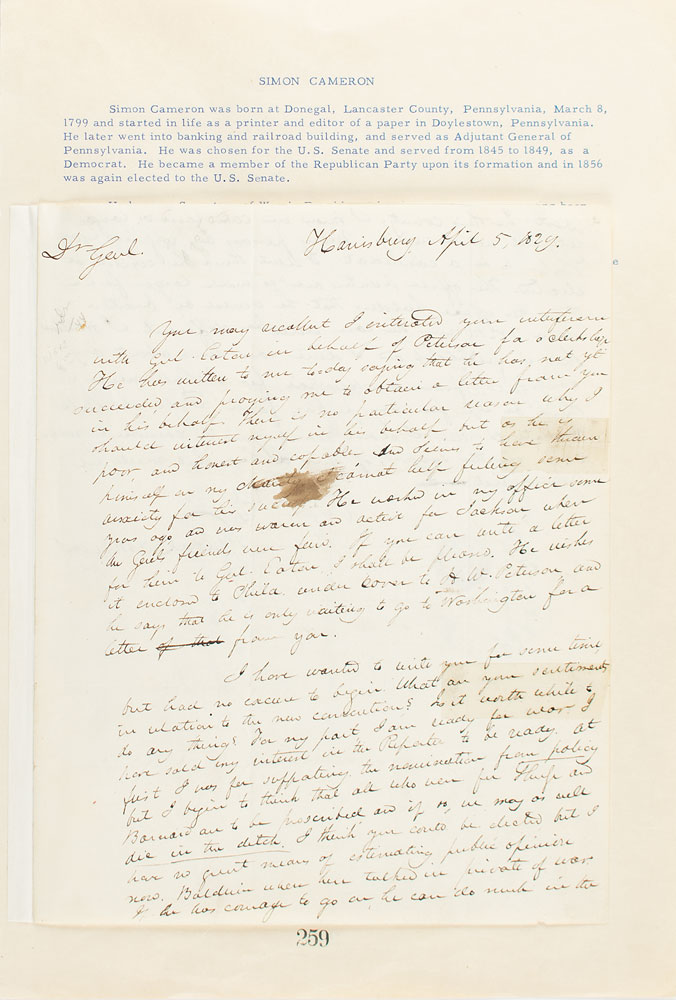 SIMON CAMERON
Simon Cameron was born at Donegal, Lancaster County, Pennsylvania, March 8,
1799 and started in life as a printer and editor of a paper in Doylestown, Pennsylvania.
He later went into banking and railroad building, and served as Adjutant General of
Pennsylvania. He was chosen for the U.S. Senate and served from 1845 to 1849, as a
Democrat. He became a member of the Republican Party upon its formation and in 1856
was again elected to the U.S. Senate.
Harrisburg, April 5, 1829.
Dr Genl.
You may recollect I your
with Genl. Eaton in behalf of Peterson for a clerkship
He has written to me today saying that he has not yet
succeeded and me to obtain a letter from you
in his behalf. There is no particular reason why I
should interest myself in his behalf but as he is
poor and honest and capable and seems to have thrown
himself on my I cannot help feeling some
anxiety for his He worked in my office some
years ago and was warm and active for Jackson when
the Genl's friends were few. If you can write a letter
for him to Genl. Eaton I shall be He wishes
it to Phila. under cover to W. Peterson and
he says that he is only waiting to go to Washington for a
letter of that from you.
I have wanted to write you for some time
but had no to begin. What are your sentiments
in relation to the new convention? Is it worth while to
do any thing? For my part I am ready for war. I
have sold my interest in the Reporter to be ready. At
first I was for supporting the nomination from policy
but I begin to think that all who were for and
Barnard are to be proscribed and if so, we may as well
die in the ditch. I think you could be elected but I
have no great means of estimating public opinion
now. Baldwin when here talked in private of war
If he has courage to go on, he can do much in the
259